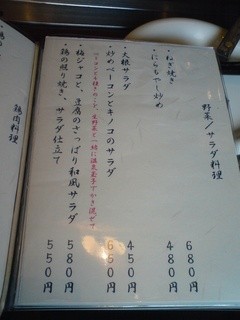 野菜/サラダ料理
・ねぎ焼き 680円
・にんちゃい炒め 480円
・大根サラダ 450円
・炒めベーコンとキノコのサラダ 650円
ベーコンと3種きのこが、生野菜と一緒に温泉玉子でかき混ぜて
・梅ジャコと、豆腐のさっぱり和風サラダ 580円
・鶏の照り焼き、サラダ仕立て 550円
鶏肉料理